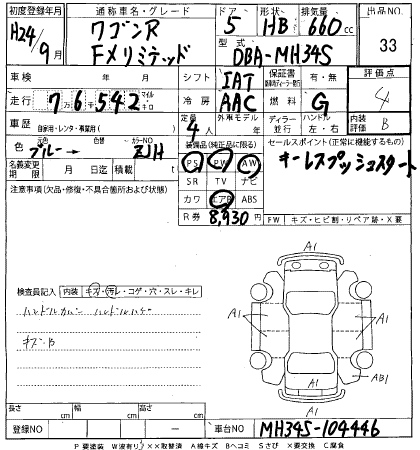 初度登録年月 通称車名・グレード ドア 形状 排気量 出品NO
H24/9月 ワゴンR FXリミテッド 5 HB 660cc 33
型式 DBA-MH34S
車検 年 月 シフト IAT 保証書 有・無 評価点
4
走行 76,542 マイル キロ 冷房 AAC 燃料 G
車歴 自家用・レンタ・事業用( ) 定員 4人 外車モデル 年 ディーラー 並行 ハンドル 左・右 内装評価 B
色 元色 ブルー→ 色替 カラーNO ZJH 装備品(純正品に限る) セールスポイント(正常に機能するもの)
PS PW AW キーレスプッシュスタート
名義変更期限 月 日迄 積載 t SR TV ナビ
注意事項(欠品・修復・不具合箇所および状態) カワ エアB ABS
R券 8,930円 FW キズ・ヒビ割・リペア跡・X要
A1
検査員記入 内装 キズ・汚レ・コゲ・穴・スレ・キレ
ハンドルカバー ハンドルハゲ
A1 A1
キズ・B
A1 AB1
A1
長さ cm 幅 cm 高さ cm
登録NO ― 車台NO MH34S-104446
P要塗装 W波有り XX取替済 A線キズ Bヘコミ Sさび X要交換 C腐食